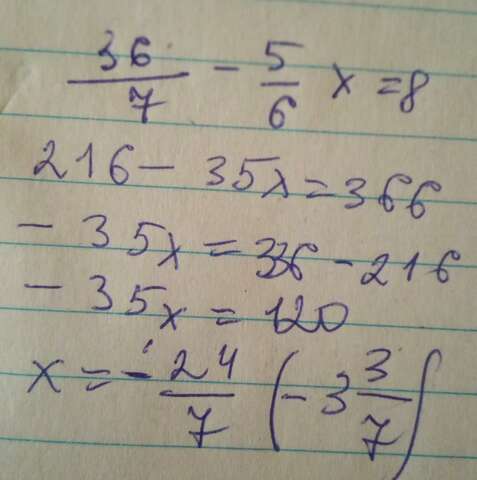 36/7 - 5/6 x = 8
216 - 35x = 366
- 35x = 336 - 216
- 35x = 120
x = - 24/7 (- 3 3/7)